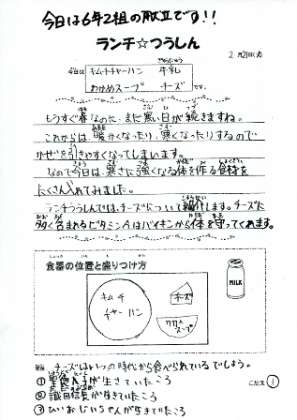 今日は6年2組の献立です!!
ランチ☆つうしん
今日は
キムチチャーハン 牛乳
わかめスープ チーズ
です。
もうすぐ春なのに、まだ寒い日が続きますね。
これからは暖かくなったり、寒くなったりするので
かぜを引きやすくなってしまいます。
なので今日は、寒さに強くなる体を作る食材を
たくさん入れてみました。
ランチつうしんでは、チーズについて紹介します。チーズに
多く含まれるビタミンAはバイキンから体を守ってくれます。
食器の位置と盛りつけ方
キムチ
チャーハン
チーズ
わかめ
スープ
MILK
チーズはいつの時代から食べられているでしょう。
①聖徳太子が生きていたころ
②織田信長が生きていたころ
③ひいおじいちゃんが生きていたころ
こたえ ①